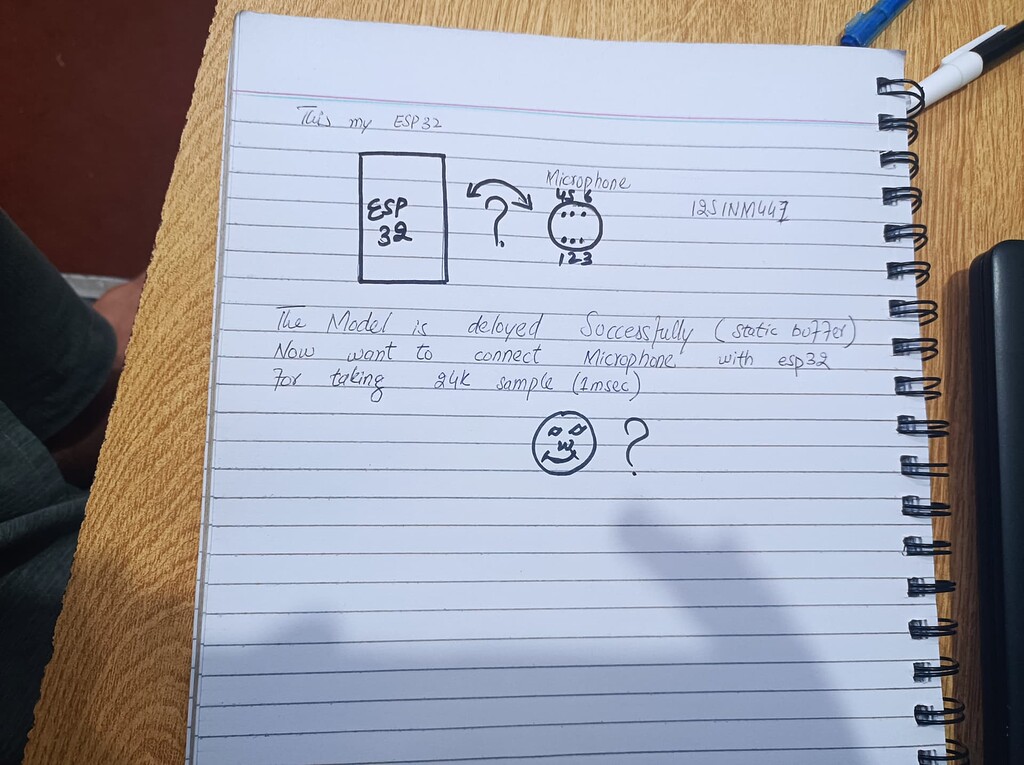 This my ESP32
Microphone
45 6
ESP
32
?
123
I2SINM441
The Model is deloyed Successfully (static buffer)
Now want to connect Microphone with esp32
For taking 24K sample (1msec)
?